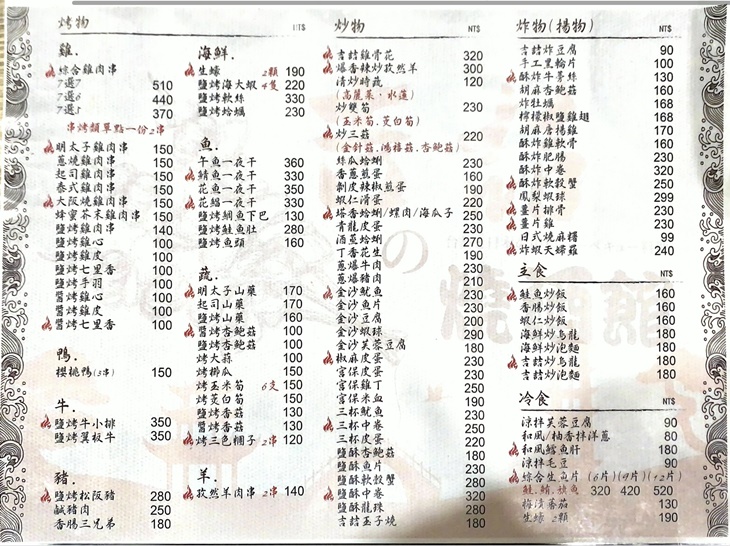 烤物 NT$
雞.
綜合雞肉串
7選7 510
7選6 440
7選5 370
串烤類單點一份2串
明太子雞肉串 150
蔥燒雞肉串 150
起司雞肉串 150
泰式雞肉串 150
大阪燒雞肉串 150
蜂蜜芥末雞肉串 150
鹽烤雞肉串 140
鹽烤雞心 100
鹽烤雞皮 100
鹽烤七里香 100
鹽烤手羽 100
醬烤雞心 100
醬烤雞皮 100
醬烤七里香 100
鴨.
櫻桃鴨(3串) 150
牛.
鹽烤牛小排 350
鹽烤翼板牛 350
豬.
鹽烤松阪豬 280
鹹豬肉 250
香腸三兄弟 180
海鮮.
生蠔 2顆 190
鹽烤海大蝦 4隻 220
鹽烤軟絲 330
鹽烤蛤蠣 230
魚.
午魚一夜干 360
鯖魚一夜干 330
花魚一夜干 350
花鯽一夜干 330
鹽烤鯛魚下巴 130
鹽烤鮭魚肚 280
鹽烤魚頭 160
蔬.
明太子山藥 170
起司山藥 170
鹽烤山藥 160
醬烤杏鮑菇 100
鹽烤杏鮑菇 100
烤大蒜 100
烤櫛瓜 150
烤玉米筍 6支 150
烤茭白筍 150
鹽烤香菇 130
醬烤香菇 130
烤三色糰子 2串 120
羊.
孜然羊肉串 2串 140
炒物 NT$
吉喆雞骨花 320
爆香辣炒孜然羊 300
清炒時蔬 120
(高麗菜、水蓮)
炒雙筍 230
(玉米筍.茭白筍)
炒三菇 220
(金針菇.鴻禧菇.杏鮑菇)
絲瓜蛤蜊 230
香蔥煎蛋 160
剝皮辣椒煎蛋 190
蝦仁滑蛋 220
塔香蛤蜊/螺肉/海瓜子 250
青龍皮蛋 230
酒蒸蛤蜊 270
丁香花生 190
蔥爆牛肉 230
蔥爆豬肉 210
金沙魷魚 230
金沙魚片 230
金沙豆腐 200
金沙蝦球 290
金沙芙蓉豆腐 180
椒麻皮蛋 230
宮保皮蛋 230
宮保雞丁 250
宮保米血 190
三杯魷魚 230
三杯中卷 250
三杯皮蛋 220
鹽酥杏鮑菇 180
鹽酥魚片 230
鹽酥軟殼蟹 280
鹽酥中卷 320
鹽酥龍珠 280
吉喆玉子燒 180
炸物(揚物) NT$
吉喆炸豆腐 90
手工黑輪片 100
酥炸牛蒡絲 130
胡麻杏鮑菇 168
炸牡蠣 168
檸檬椒鹽雞翅 168
胡麻唐揚雞 170
酥炸雞軟骨 160
酥炸肥腸 230
酥炸中卷 320
酥炸軟殼蟹 250
鳳梨蝦球 299
薑片排骨 230
薑片雞 230
日式燒麻糬 99
炸蝦天婦羅 240
主食 NT$
鮭魚炒飯 160
香腸炒飯 160
蝦仁炒飯 160
海鮮炒烏龍 180
海鮮炒泡麵 180
吉喆炒烏龍 180
吉喆炒泡麵 180
冷食 NT$
涼拌芙蓉豆腐 90
和風/柚香拌洋蔥 80
和風鱈魚肝 180
涼拌毛豆 90
綜合生魚片 (6片)(9片)(12片)
鮭.鮪.旗魚 320 420 520
梅漬蕃茄 130
生蠔 2顆 190